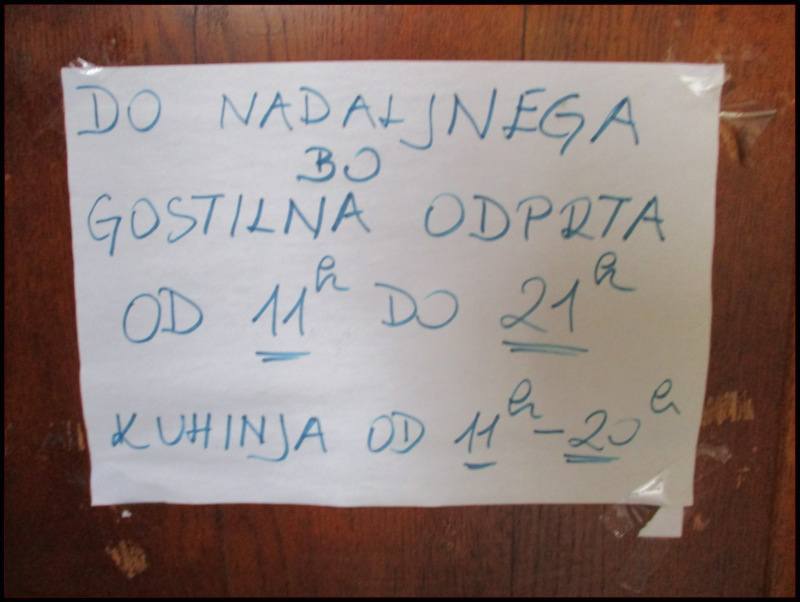 DO NADALJNEGA
BO
GOSTILNA ODPRTA
OD 11h DO 21h
KUHINJA OD 11h - 20h